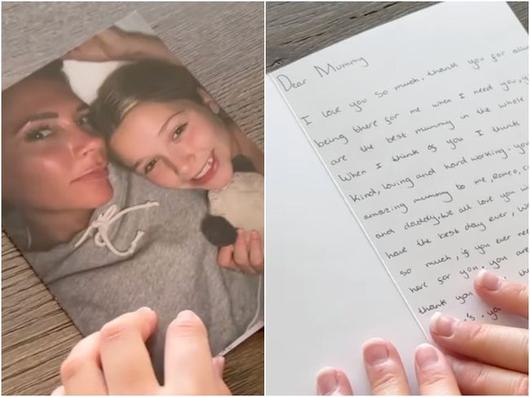 Dear Mummy
I love you so much. thank you for
being there for me when I need you
are the best mummy in the whole
When I think of you I think
kind, loving and hard working. you
amazing mummy to me, Romeo,
and daddy. We all love you
have the best day ever,
so much, if you ever need
here for you, you are
thank you